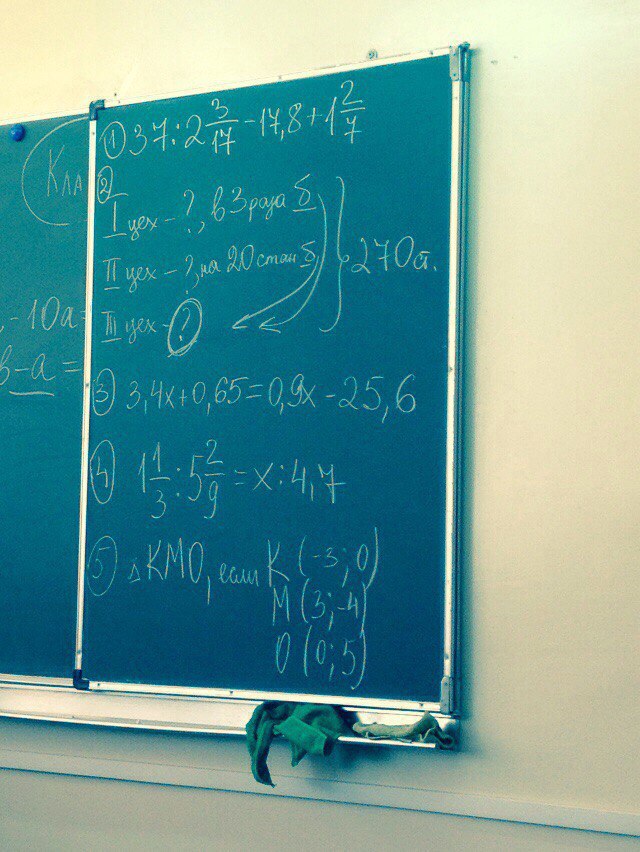 Кла
-10а=
в-а=
① 37:2 3/17 - 17,8 + 1 2/7
②
I цех - ?, в 3 раза б
II цех - ?, на 20 стан б
III цех - ?
270 ст.
③ 3,4х+0,65=0,9х-25,6
④ 1 1/3 : 5 2/9 = х : 4,7
⑤ △ КМО, если К (-3; 0)
М (3; -4)
О (0; 5)